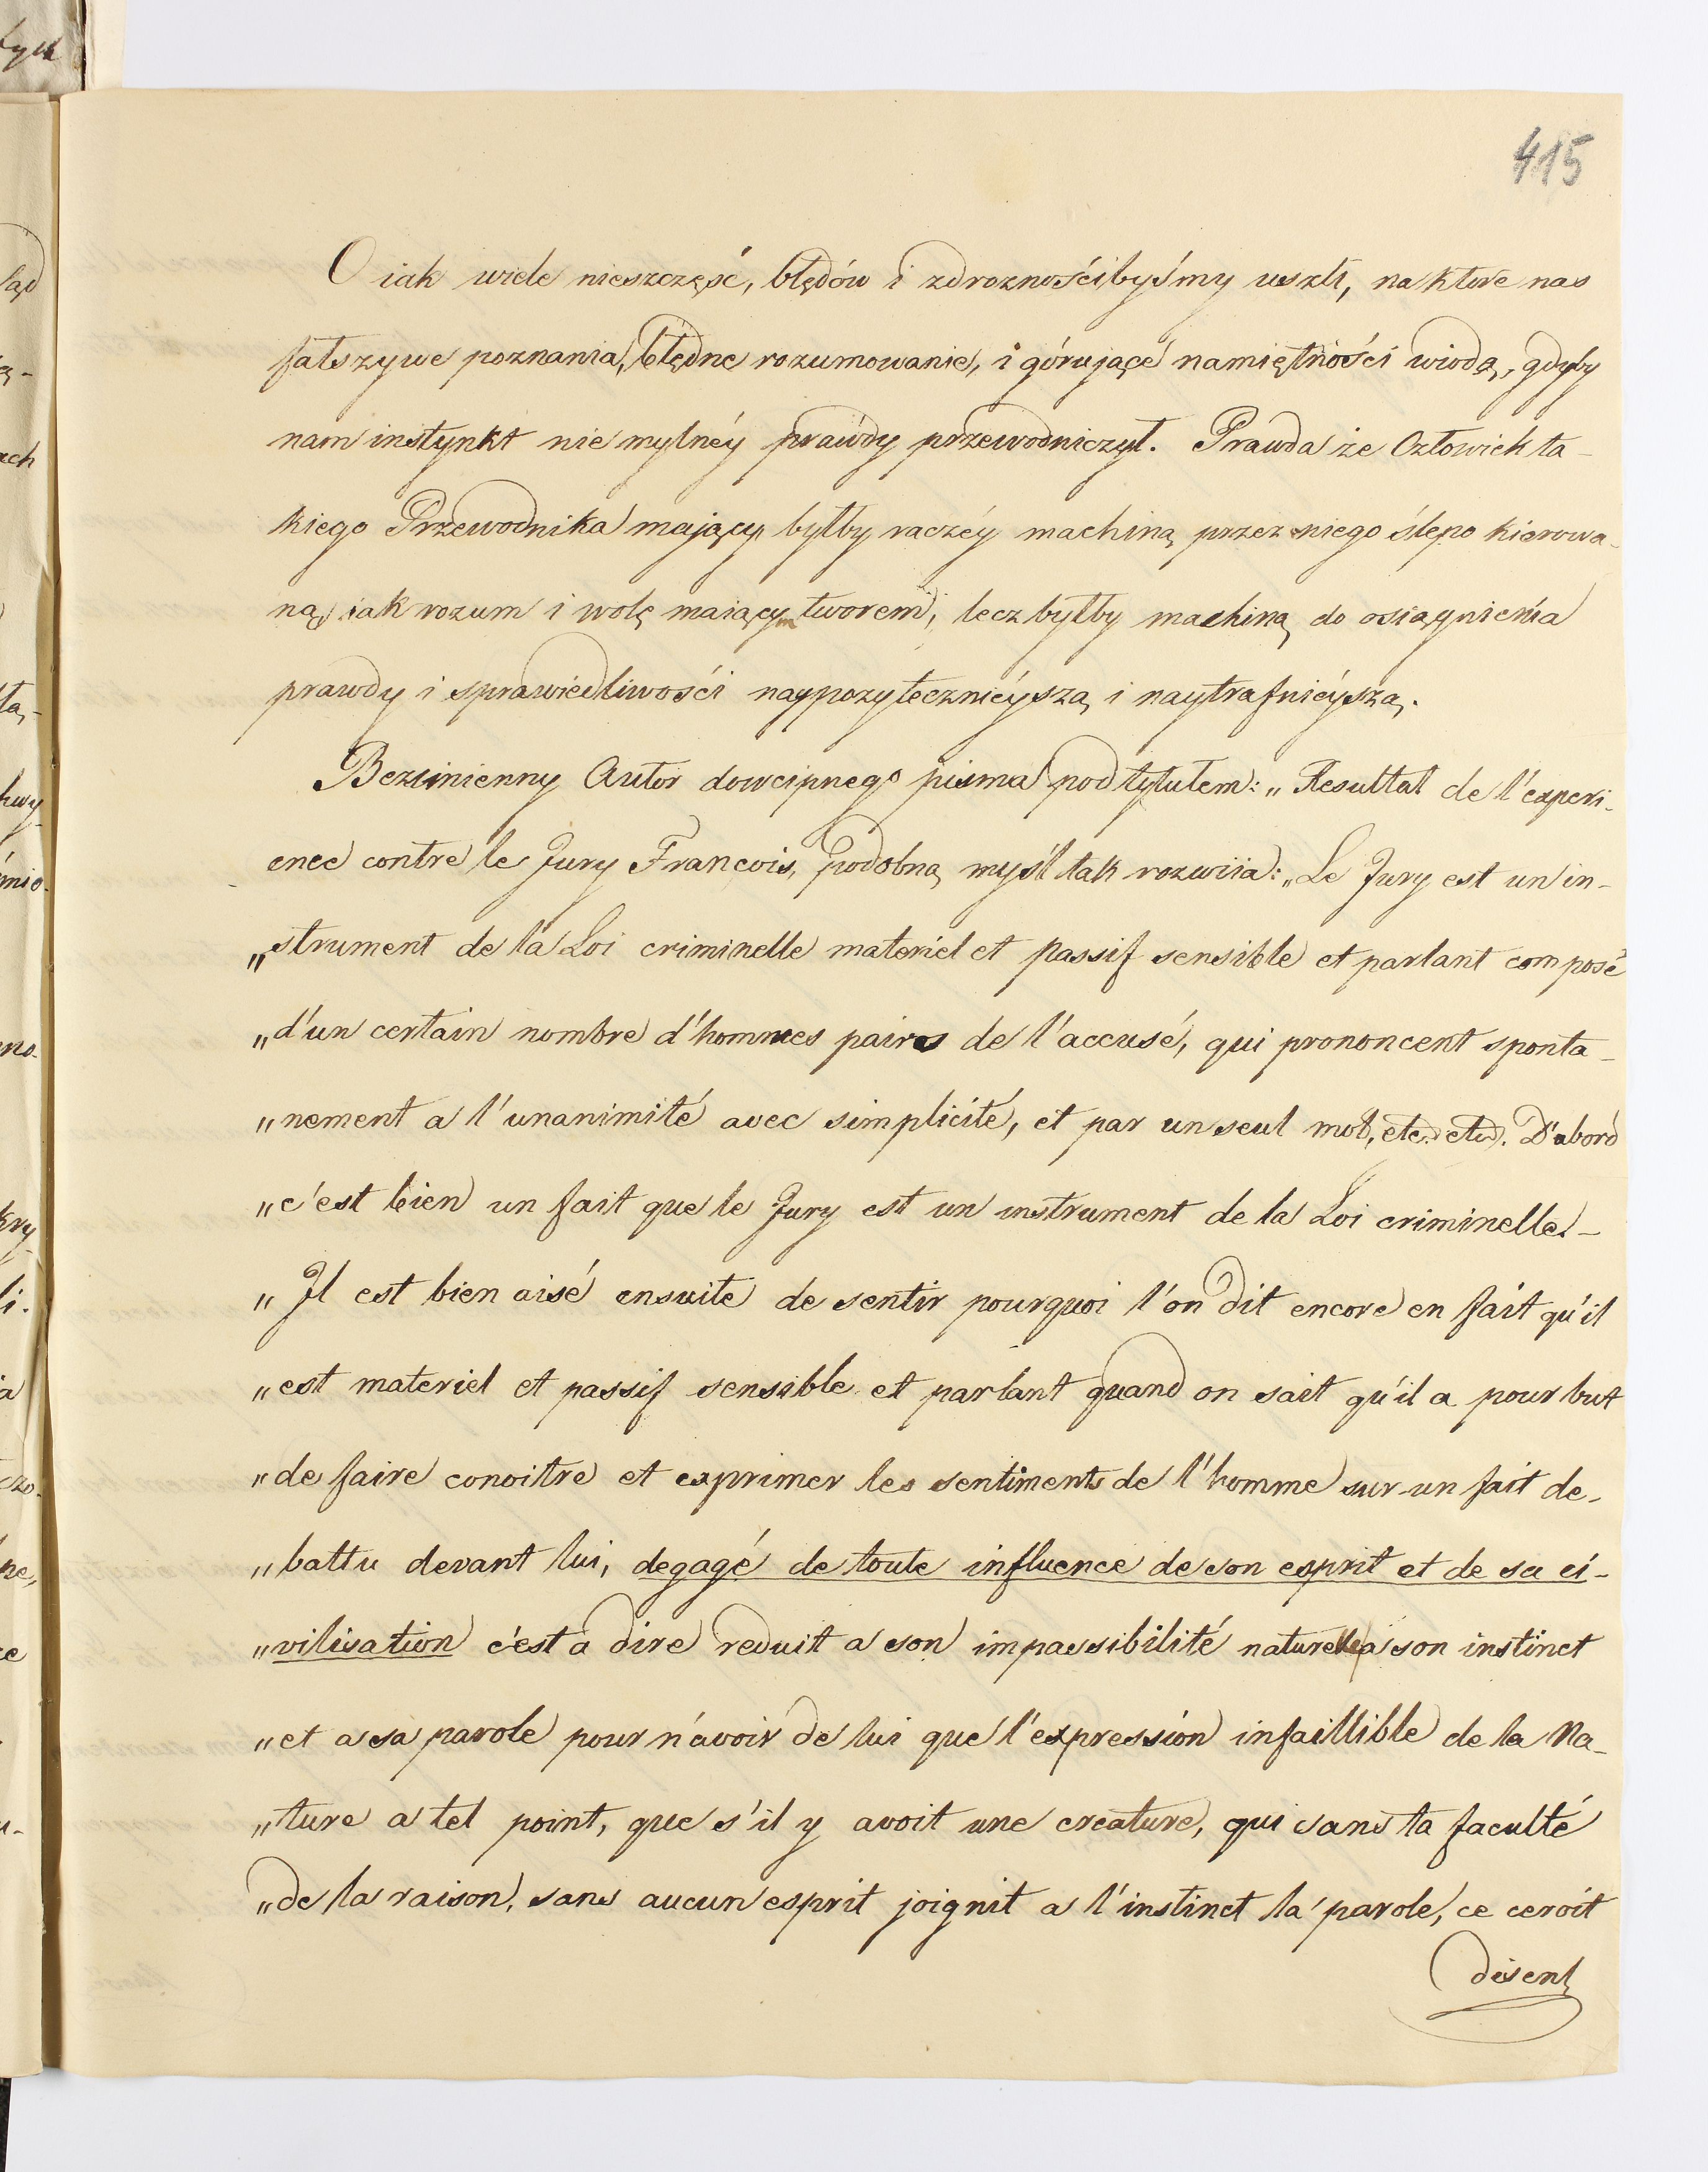 415
O iak wiele nieszczęść, błędów i zdrożnościbyśmy uszli, na które nas
fałszywe poznania, błędne rozumowanie, i górujące namiętności wiodą, gdyby
nam instynkt nie mylnéy prawdy przewodniczył. Prawda że Człowiek ta-
kiego Przewodnika mający byłby raczéy machiną przez niego ślepo kierowa-
ną, iak rozum i wolę maiącym tworem; lecz byłby machiną do osiągnienia
prawdy i sprawiedliwości naypozytecznieyszą i naytrafnieyszą.
Bezimienny Autor dowcipnego pisma pod tytułem: „Resultat de l'experi-
ence contre le Jury Francois, podobną myśl tak rozwiia: „Le Jury est un in-
„strument de la Loi criminelle materiel et passif sensible et parlant composé
„d'un certain nombre d'hommes paires de l'accusé, qui prononcent sponta-
„nement a l'unanimité avec simplicité, et par un seul mot, etc. etc. D'abord
„c'est bien un fait que le Jury est un instrument de la Loi criminelle. -
„Il est bien aisé ensuite de sentir pourquoi l'on dit encore en fait qu'il
„est materiel et passif sensible et parlant quand on sait qu'il a pour but
„de faire conoitre et exprimer les sentiments de l'homme sur un fait de-
„battu devant lui, degagé de toute influence de son esprit et de sa ci-
„vilisation c'est a dire reduit a son impassibilité naturelle, a son instinct
„et a sa parole pour n'avoir de lui que l'expression infaillible de la Na-
„ture a tel point, que s'il y avoit une creature, qui sans la faculté
„de la raison, sans aucun esprit joignit a l'instinct la parole, ce ceroit